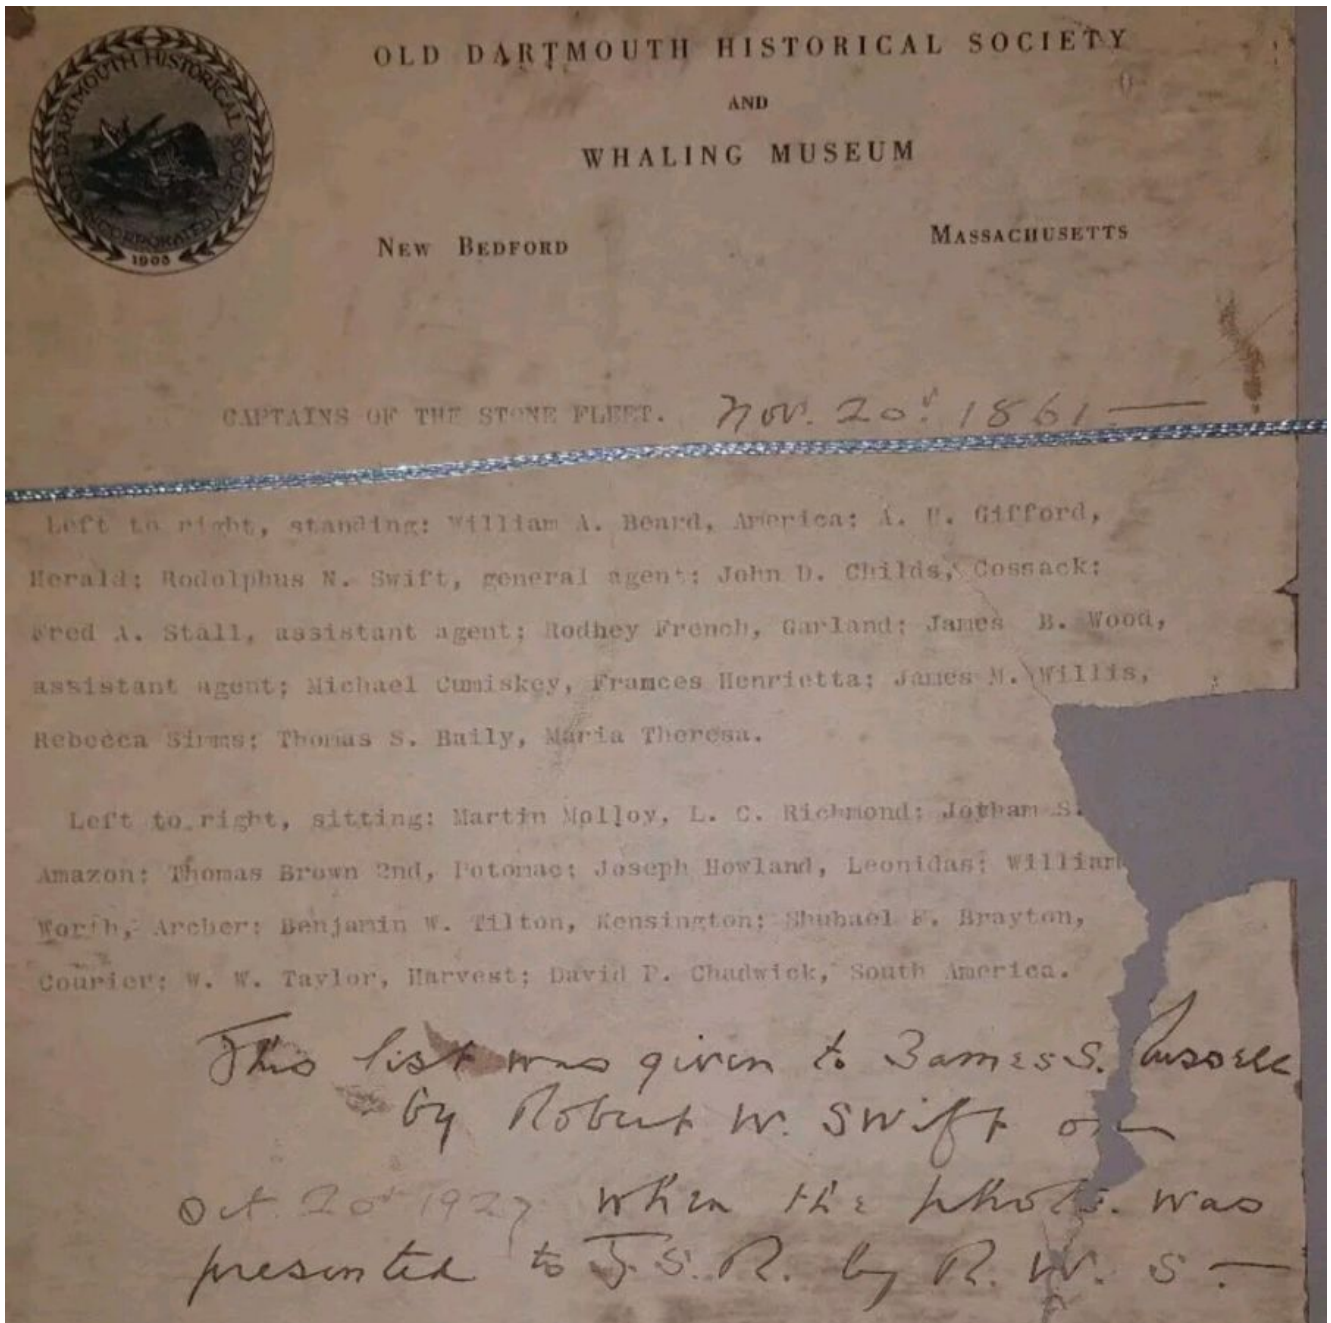 OLD DARTMOUTH HISTORICAL SOCIETY
OLD DARTMOUTH HISTORICAL SOCIETY
INCORPORATED
1903
AND
WHALING MUSEUM
NEW BEDFORD MASSACHUSETTS
CAPTAINS OF THE STONE FLEET. Nov. 20d. 1861 —
Left to right, standing: William A. Beard, America; A. H. Gifford,
Herald; Rodolphus N. Swift, general agent; John D. Childs, Cossack;
Fred A. Stall, assistant agent; Rodney French, Garland; James B. Wood,
assistant agent; Michael Cumiskey, Frances Henrietta; James M. Willis,
Rebecca Simms; Thomas S. Baily, Maria Theresa.
Left to right, sitting: Martin Molloy, L. C. Richmond; Jotham S.
Amazon; Thomas Brown 2nd, Potomac; Joseph Howland, Leonidas; William
Worth, Archer; Benjamin W. Tilton, Kensington; Shubael F. Brayton,
Courier; W. W. Taylor, Harvest; David P. Chadwick, South America.
This list was given to James S. Russell
by Robert W. Swift on
Oct. 20d 1927 when the photo. was
presented to J. S. R. by R. W. S —